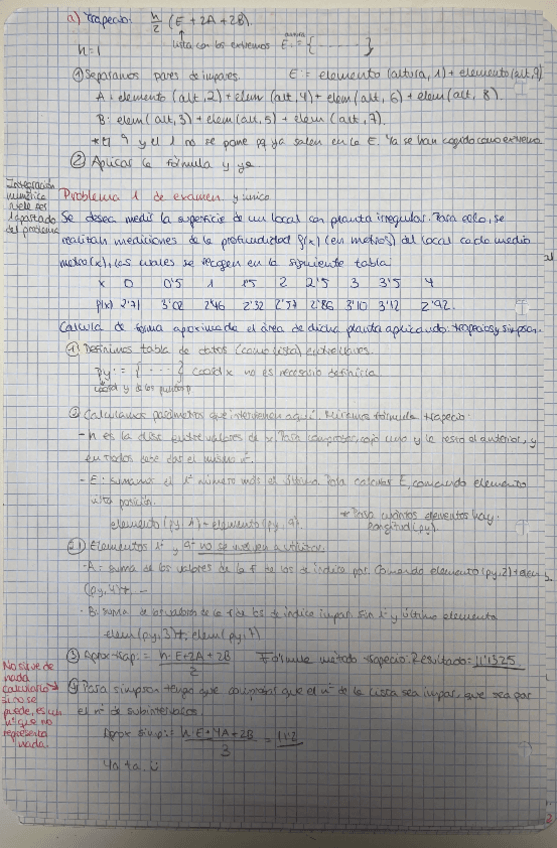 a) Trapecio: h/2 (E + 2A + 2B).
lista con los extremos E := {.......}
h = 1
① Separamos pares de impares. E := elemento (altura, 1) + elemento (alt, 9)
A: elemento (alt, 2) + elem (alt, 4) + elem (alt, 6) + elem (alt, 8).
B: elem (alt, 3) + elem (alt, 5) + elem (alt, 7).
9 y el 1 no se pone pq ya salen en la E. Ya se han cogido como extremos
② Aplicar la fórmula y ya
Integración numérica suele ser 1 apartado del problema
Problema 1 de examen y único
Se desea medir la superficie de un local con planta irregular. Para ello, se
realizan mediciones de la profundidad f(x) (en metros) del local cada medio
metro (x), las cuales se recogen en la siguiente tabla
x 0 0'5 1 1'5 2 2'5 3 3'5 4
f(x) 2'71 3'02 2'46 2'32 2'57 2'86 3'10 3'12 2'92.
Calcula de forma aproximada el área de dicha planta aplicando: trapecios y simpson.
① Definimos tabla de datos (como lista)
py := {....} coord x no es necesario definirla
coord y de los puntos
② Calculamos parámetros que intervienen aquí. Miramos fórmula trapecio
- h es la dist entre valores de x. Para comprobar, cojo uno y le resto el anterior, y
en todos debe dar el mismo nº.
- E: sumamos el 1º número más el último. Para calcular E, comando elemento
lista posición.
elemento (py, 1) + elemento (py, 9).
* Para cuántos elementos hay: longitud (py).
2.1 Elementos 1º y 9º no se vuelven a utilizar.
- A = suma de los valores de la f de los de índice par. Comando elemento (py, 2) + elem
(py, 4) + ...
- B: suma de los valores de la f de los de índice impar sin 1º y último elemento
elem (py, 3) + elem (py, 7)
③ Aprox trap := h · E + 2A + 2B / 2 Fórmula método trapecio. Resultado = 11'1325
No sirve de nada calcularlo si no se puede, es un nº que no representa nada.
④ Para simpson tengo que comprobar que el nº de la lista sea impar, que sea par
el nº de subintervalos
Aprox simp := h · E + 4A + 2B / 3 = 11'2
Ya ta :)